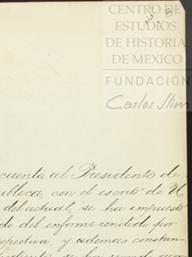 CENTRO DE
ESTUDIOS
DE HISTORIA
DE MEXICO
FUNDACIÓN
Carlos Slim
cuenta al Presidente de
ública, con el escrito de U
del actual, se ha impuesto
ido del informe rendido por
spectiva, y ademas constan